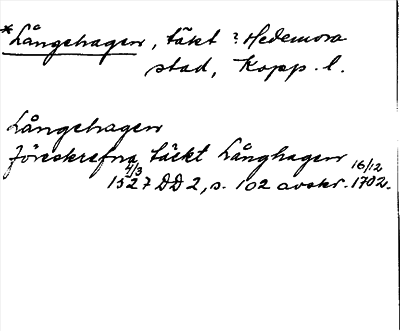 *Långehagen, täkt ? Hedemora
stad, Kopp. l.
Långehagen
föreskrefna täckt Långhagen 16/12
4/3 1527 DD 2, s. 102 avskr. 1702.